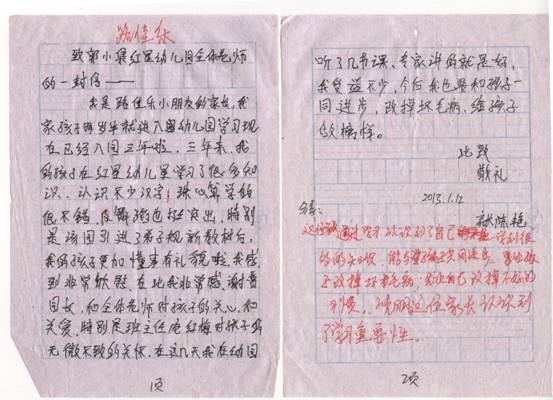 路佳乐
致郭小集红星幼儿园全体老师
的一封信——
我是路佳乐小朋友的家长，我
家孩子两岁半就进入幼儿园学习现
在已经入园三年啦，三年来，我
的孩子在红星幼儿园学习了很多知
识，认识不少汉字，珠心算学的
很不错，舞蹈也，特别
是该园引进了弟子规新教材后，
我的孩子更加懂事有礼貌啦，我感
到非常欣慰，在此我非常感谢贵
园长，和全体老师对孩子的关心，和
关爱，特别是班主任唐红梅对孩子的
无微不致的关怀，在这几天我在幼园
1页
听了几节课，专家讲的就是好，
我受益不少，今后我也要和孩子一
同进步，改掉坏毛病，给孩子
做榜样。
此致
敬礼
2013.1.12
陈艳
通过学习认识到了自己
的的知识，能与孩子共同进步，
改掉坏毛病，自己改掉不好的
习惯，说明这位家长认识到
了学习重要性。
2页